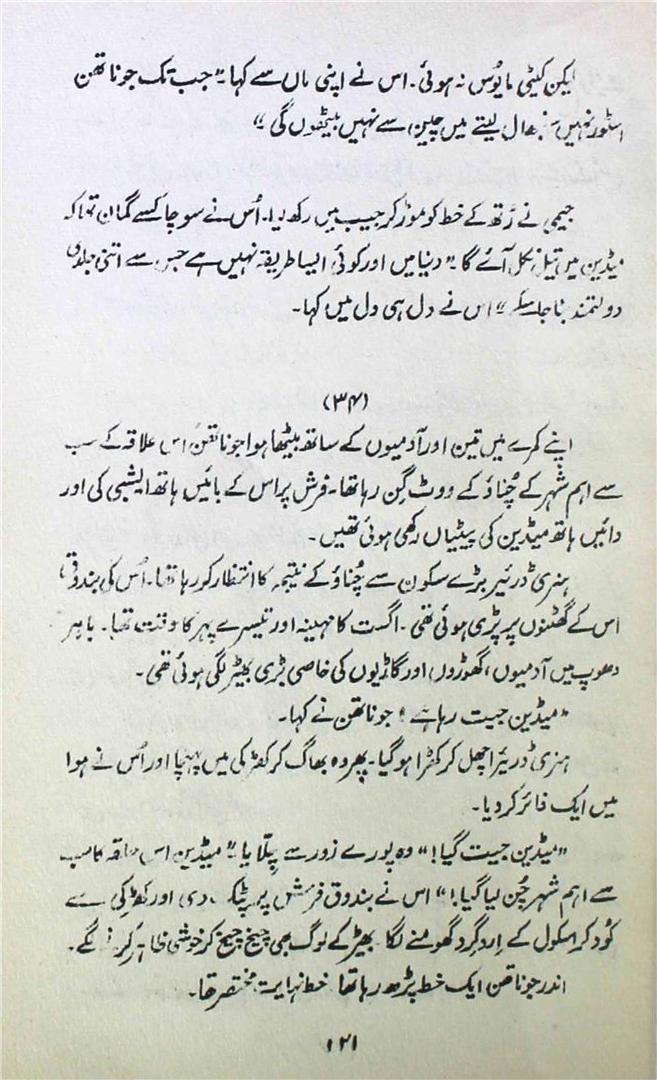 لیکن کیٹی مایوس نہ ہوئی۔ اس نے اپنی ماں سے کہا۔" جب تک جوناتھن
اسٹور نہیں سنبھال لیتے میں چین سے نہیں بیٹھوں گی"
جیمی نے رتھ کے خط کو موڑ کر جیب میں رکھ لیا۔ اُس نے سوچا کسے گمان تھا کہ
میڈین میں تیل نکل آئے گا۔" دنیا میں اور کوئی ایسا طریقہ نہیں ہے جس سے اتنی جلدی
دولتمند بنا جا سکے" اس نے دل ہی دل میں کہا۔
(۳۴)
اپنے کمرے میں تین اور آدمیوں کے ساتھ بیٹھا ہوا جوناتھن اس علاقہ کے سب
سے اہم شہر کے چُناؤ کے ووٹ گِن رہا تھا۔ فرش پر اس کے بائیں ہاتھ ایشبی کی اور
دائیں ہاتھ میڈین کی پیٹیاں رکھی ہوئی تھیں۔
ہنری ڈرئیر بڑے سکون سے چُناؤ کے نتیجہ کا انتظار کر رہا تھا۔ اُس کی بندوق
اس کے گھٹنوں پر پڑی ہوئی تھی۔ اگست کا مہینہ اور تیسرے پہر کا وقت تھا۔ باہر
دھوپ میں آدمیوں، گھوڑوں اور گاڑیوں کی خاصی بڑی بھیڑ لگی ہوئی تھی۔
"میڈین جیت رہا ہے" جوناتھن نے کہا۔
ہنری ڈرئیر اچھل کر کھڑا ہوگیا۔ پھر وہ بھاگ کر کھڑکی میں پہنچا اور اُس نے ہوا
میں ایک فائر کر دیا۔
"میڈین جیت گیا!" وہ پورے زور سے چِلّایا۔" میڈین اس حلقہ کا سب
سے اہم شہر چُن لیا گیا!" اس نے بندوق فرش پر پٹک دی اور کھڑکی سے
کُود کر اسکول کے اِرد گرد گھومنے لگا۔ بھیڑ کے لوگ بھی چیخ چیخ کر خوشی ظاہر کرنے لگے۔
اندر جوناتھن ایک خط پڑھ رہا تھا۔ خط نہایت مختصر تھا۔
۱۲۱